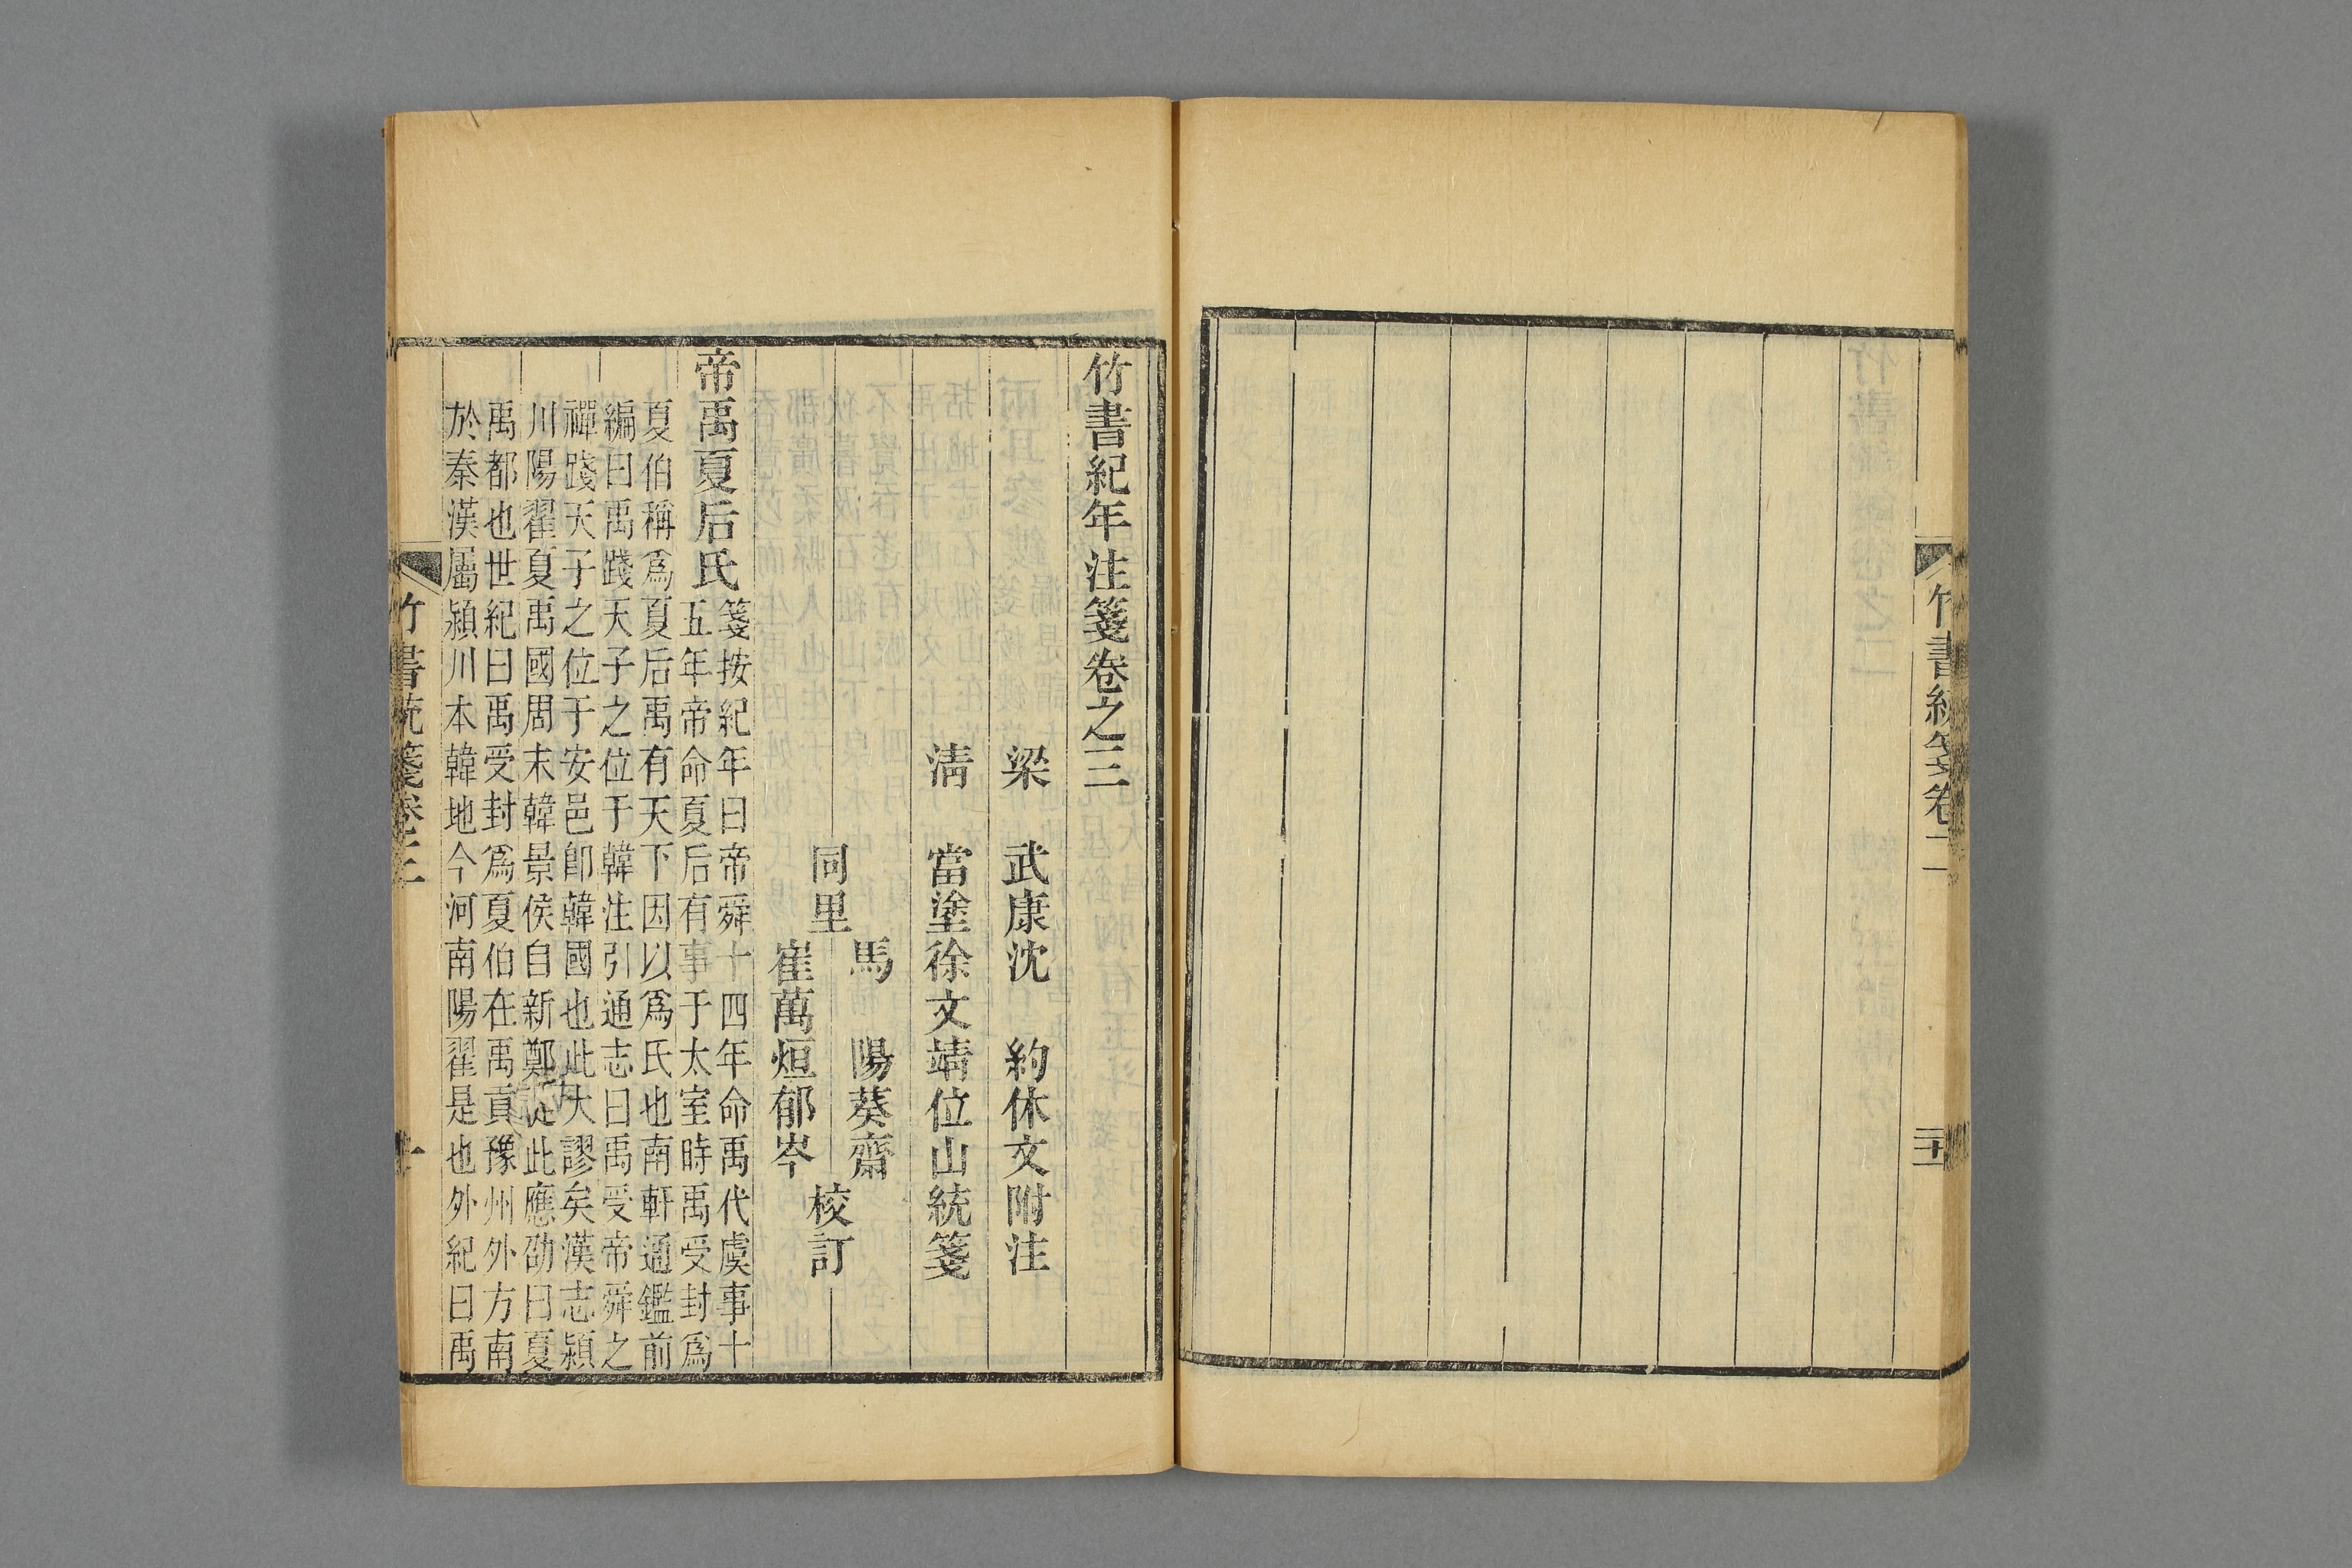 竹書統箋卷二
二十一
竹書紀年注箋卷之三
梁　武康沈　約休文附注
清　當塗徐文靖位山統箋
同里
馬　陽葵齋
崔萬烜郁岑
校訂
帝禹夏后氏
箋按紀年曰帝舜十四年命禹代虞事十
五年帝命夏后有事于太室時禹受封爲
夏伯稱爲夏后禹有天下因以爲氏也南軒通鑑前
編曰禹踐天子之位于韓注引通志曰禹受帝舜之
禪踐天子之位于安邑卽韓國也此大謬矣漢志潁
川陽翟夏禹國周末韓景侯自新鄭徙此應劭曰夏
禹都也世紀曰禹受封爲夏伯在禹貢豫州外方南
於秦漢屬潁川本韓地今河南陽翟是也外紀曰禹
竹書統箋卷三